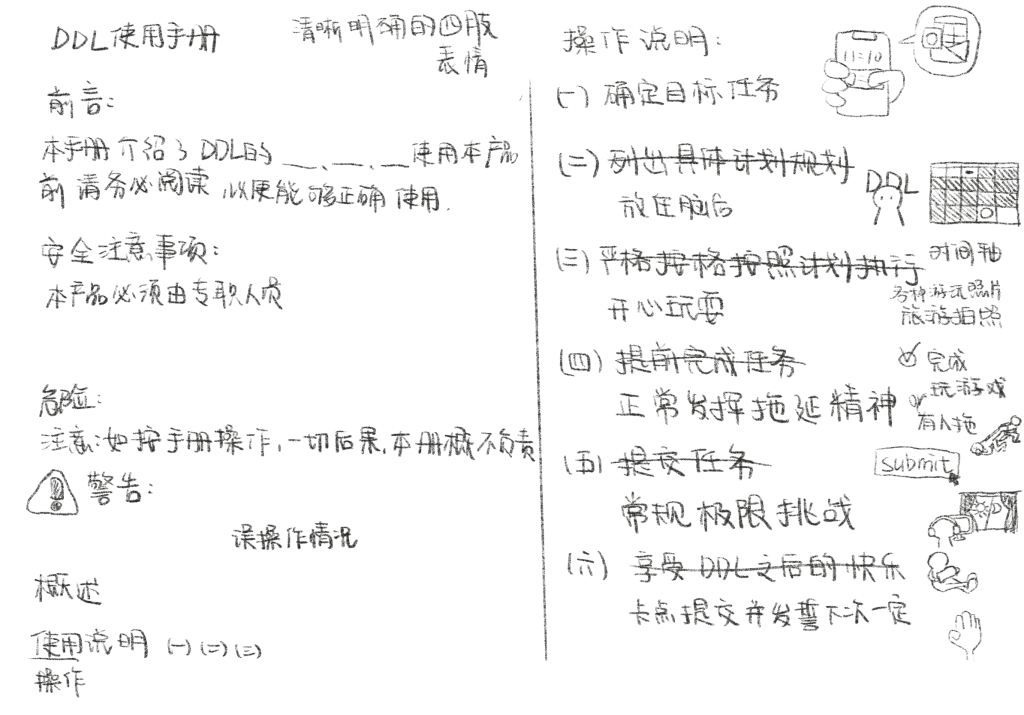 DDL使用手册
清晰明确的四肢
表情
前言：
本手册介绍了DDL的__、__、__使用本产品
前请务必阅读 以便能够正确使用.
安全注意事项：
本产品必须由专职人员
危险：
注意：如按手册操作，一切后果，本册概不负责
警告：
误操作情况
概述
使用说明 (一)(二)(三)
操作
操作说明：
11:10
(一) 确定目标任务
(二) 列出具体计划规划
放在脑后
DDL
(三) 严格按格按照计划执行
时间轴
开心玩耍
各种游玩照片
旅游拍照
(四) 提前完成任务
完成
正常发挥拖延精神
玩游戏
有人拖
(五) 提交任务
submit
常规极限挑战
(六) 享受DDL之后的快乐
卡点提交并发誓下次一定